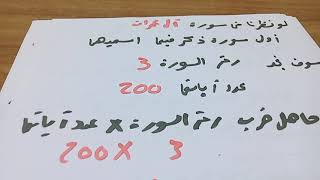 لو نظرنا في سورة آل عمران
أول سورة ذكر فيها اسميهما
سوف نجد رقم السورة 3
عدد آياتها 200
حاصل ضرب رقم السورة × عدد آياتها
200 × 3